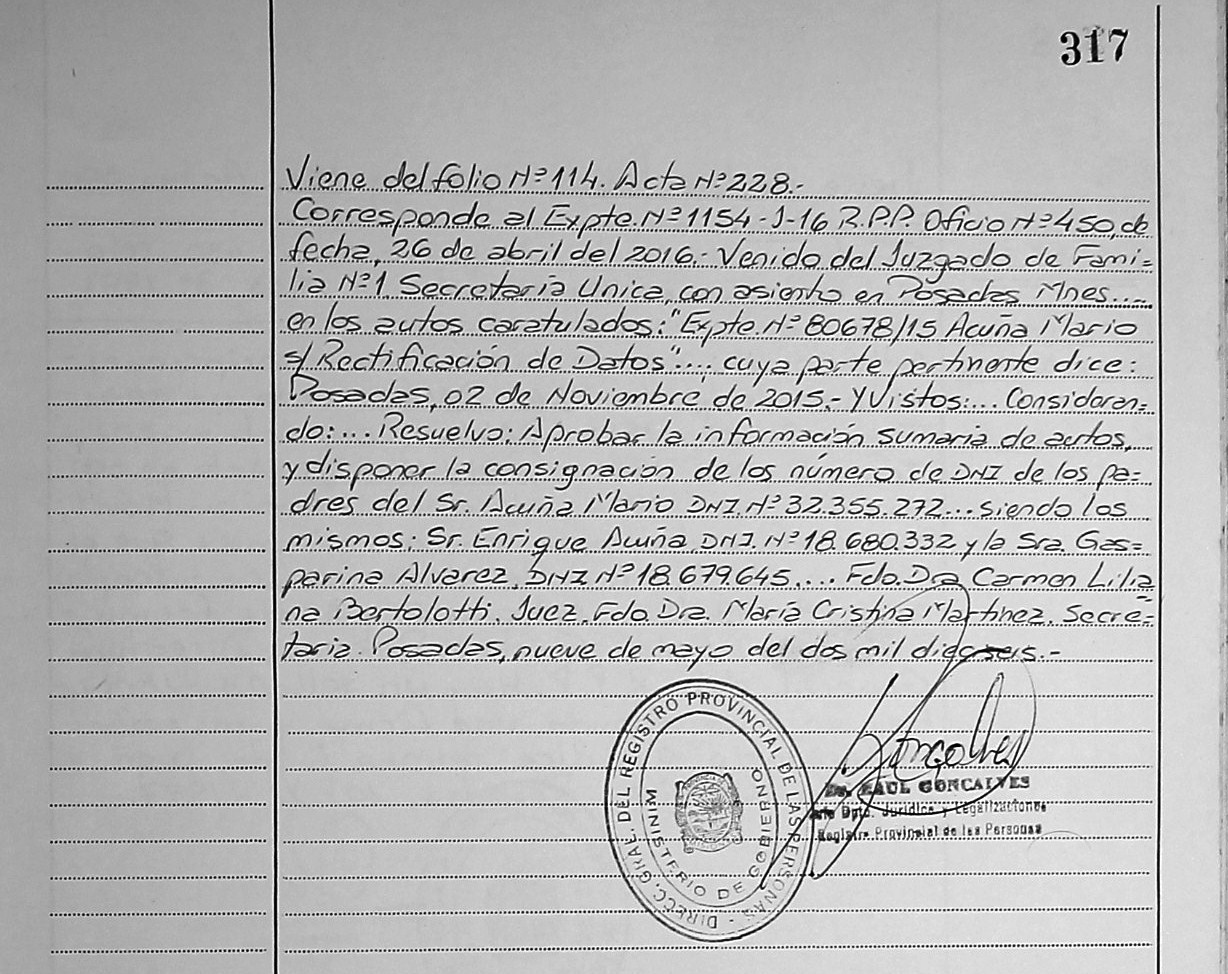 317
Viene del folio Nº 114. Acta Nº 228.-
Corresponde al Expte. Nº 1154-J-16 R.P.P. Oficio Nº 450, de
fecha, 26 de abril del 2016.- Venido del Juzgado de Fami=
lia Nº 1 Secretaría Unica, con asiento en Posadas Mnes....
en los autos caratulados: "Expte. Nº 80678/15 Acuña Mario
s/ Rectificación de Datos".... cuya parte pertinente dice:
Posadas, 02 de Noviembre de 2015.- Y Vistos:... Consideran=
do:... Resuelvo: Aprobar la información sumaria de autos,
y disponer la consignación de los número de DNI de los pa=
dres del Sr. Acuña Mario DNI. Nº 32.355.272... siendo los
mismos: Sr. Enrique Acuña, DNI. Nº 18.680.332 y la Sra. Gas=
parina Alvarez, DNI Nº 18.679.645.... Fdo. Dra Carmen Lilia
na Bertolotti. Juez. Fdo. Dra. María Cristina Martinez. Secre=
taria. Posadas, nueve de mayo del dos mil dieciseis.-
DIRECC. GRAL. DEL REGISTRO PROVINCIAL DE LAS PERSONAS -
MINISTERIO DE GOBIERNO
Dr. RAUL GONCALVES
Jefe Dpto. Jurídica y Legalizaciones
Registro Provincial de las Personas